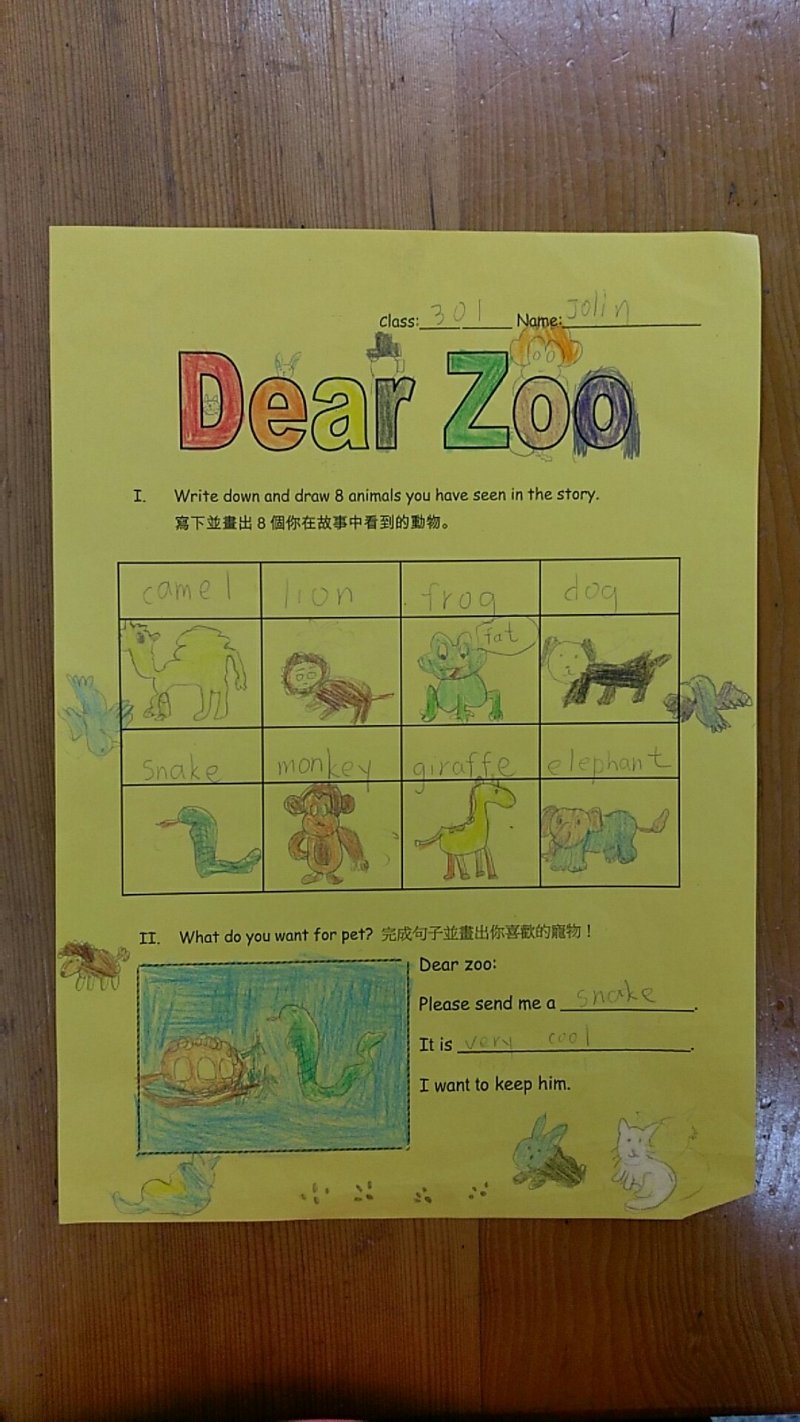 Class: 301 Name: Jolin
Dear Zoo
I. Write down and draw 8 animals you have seen in the story.
寫下並畫出 8 個你在故事中看到的動物。
camel lion frog dog
fat
snake monkey giraffe elephant
II. What do you want for pet? 完成句子並畫出你喜歡的寵物！
Dear zoo:
Please send me a snake.
It is very cool.
I want to keep him.